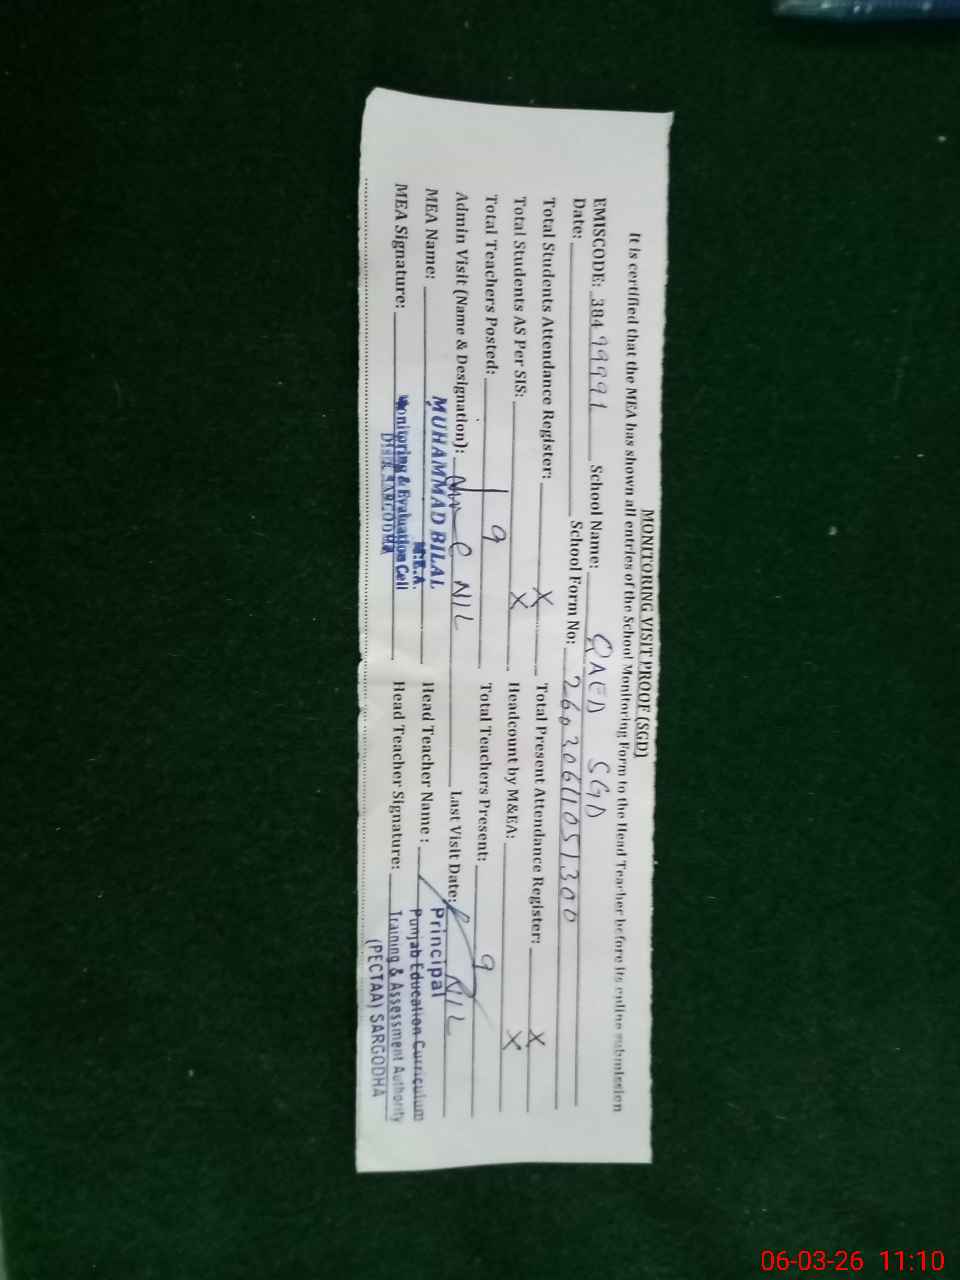 MONITORING VISIT PROOF (SGD)
It is certified that the MEA has shown all entries of the School Monitoring Form to the Head Teacher before its online submission
EMISCODE: 38499991 School Name: QAED SGD
Date: School Form No: 2603061051300
Total Students Attendance Register: X Total Present Attendance Register: X
Total Students AS Per SIS: X Headcount by M&EA: X
Total Teachers Posted: 9 Total Teachers Present: 9
Admin Visit (Name & Designation): NIL Last Visit Date: NIL
MEA Name: MUHAMMAD BILAL Head Teacher Name : Principal
M.E.A. Punjab Education Curriculum
MEA Signature: Monitoring & Evaluation Cell Head Teacher Signature: Training & Assessment Authority
Distt. SARGODHA (PECTAA) SARGODHA
06-03-26 11:10